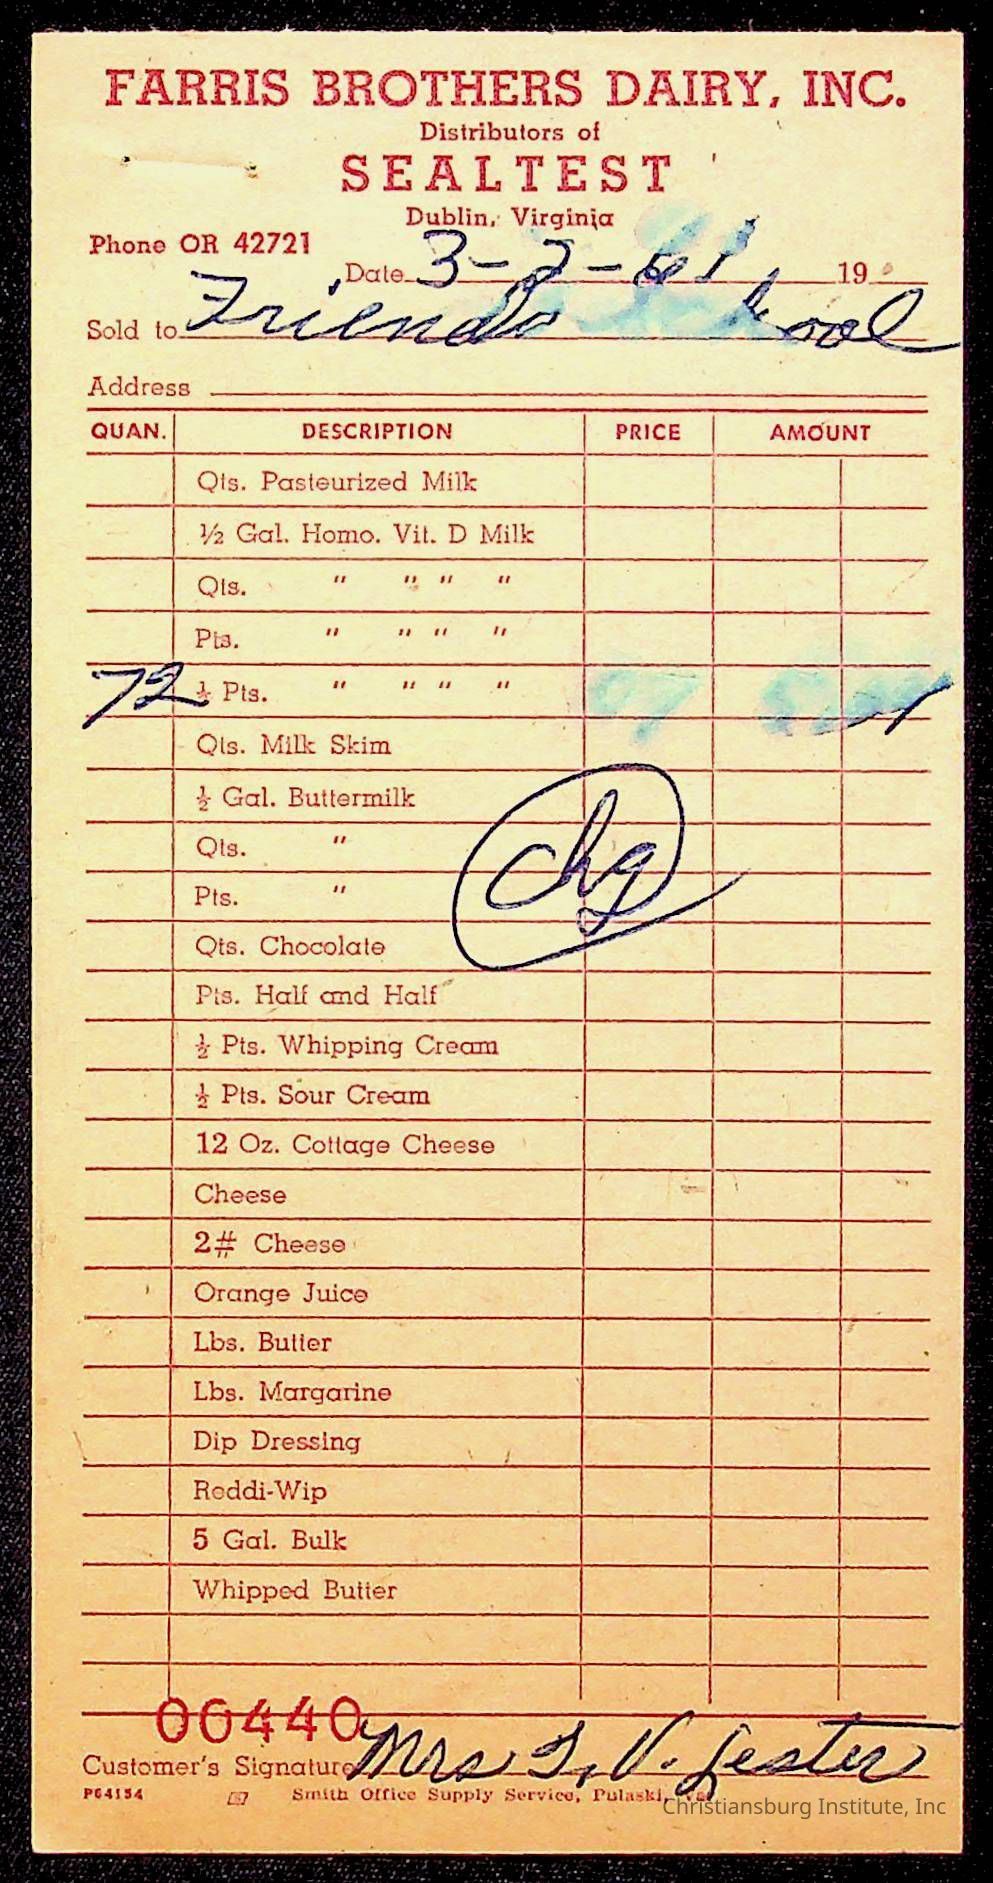 FARRIS BROTHERS DAIRY, INC.
Distributors of
SEALTEST
Dublin, Virginia
Phone OR 42721
Date 3-2-61 19
Sold to Friends School
Address
QUAN. DESCRIPTION PRICE AMOUNT
Qts. Pasteurized Milk
½ Gal. Homo. Vit. D Milk
Qts. " " " "
Pts. " " " "
72 ½ Pts. " " " "
Qts. Milk Skim
½ Gal. Buttermilk
Qts. "
chg
Pts. "
Qts. Chocolate
Pts. Half and Half
½ Pts. Whipping Cream
½ Pts. Sour Cream
12 Oz. Cottage Cheese
Cheese
2# Cheese
Orange Juice
Lbs. Butter
Lbs. Margarine
Dip Dressing
Reddi-Wip
5 Gal. Bulk
Whipped Butter
00440
Customer's Signature Mrs T. V. Lester
P64154 Smith Office Supply Service, Pulaski, Va.
Christiansburg Institute, Inc